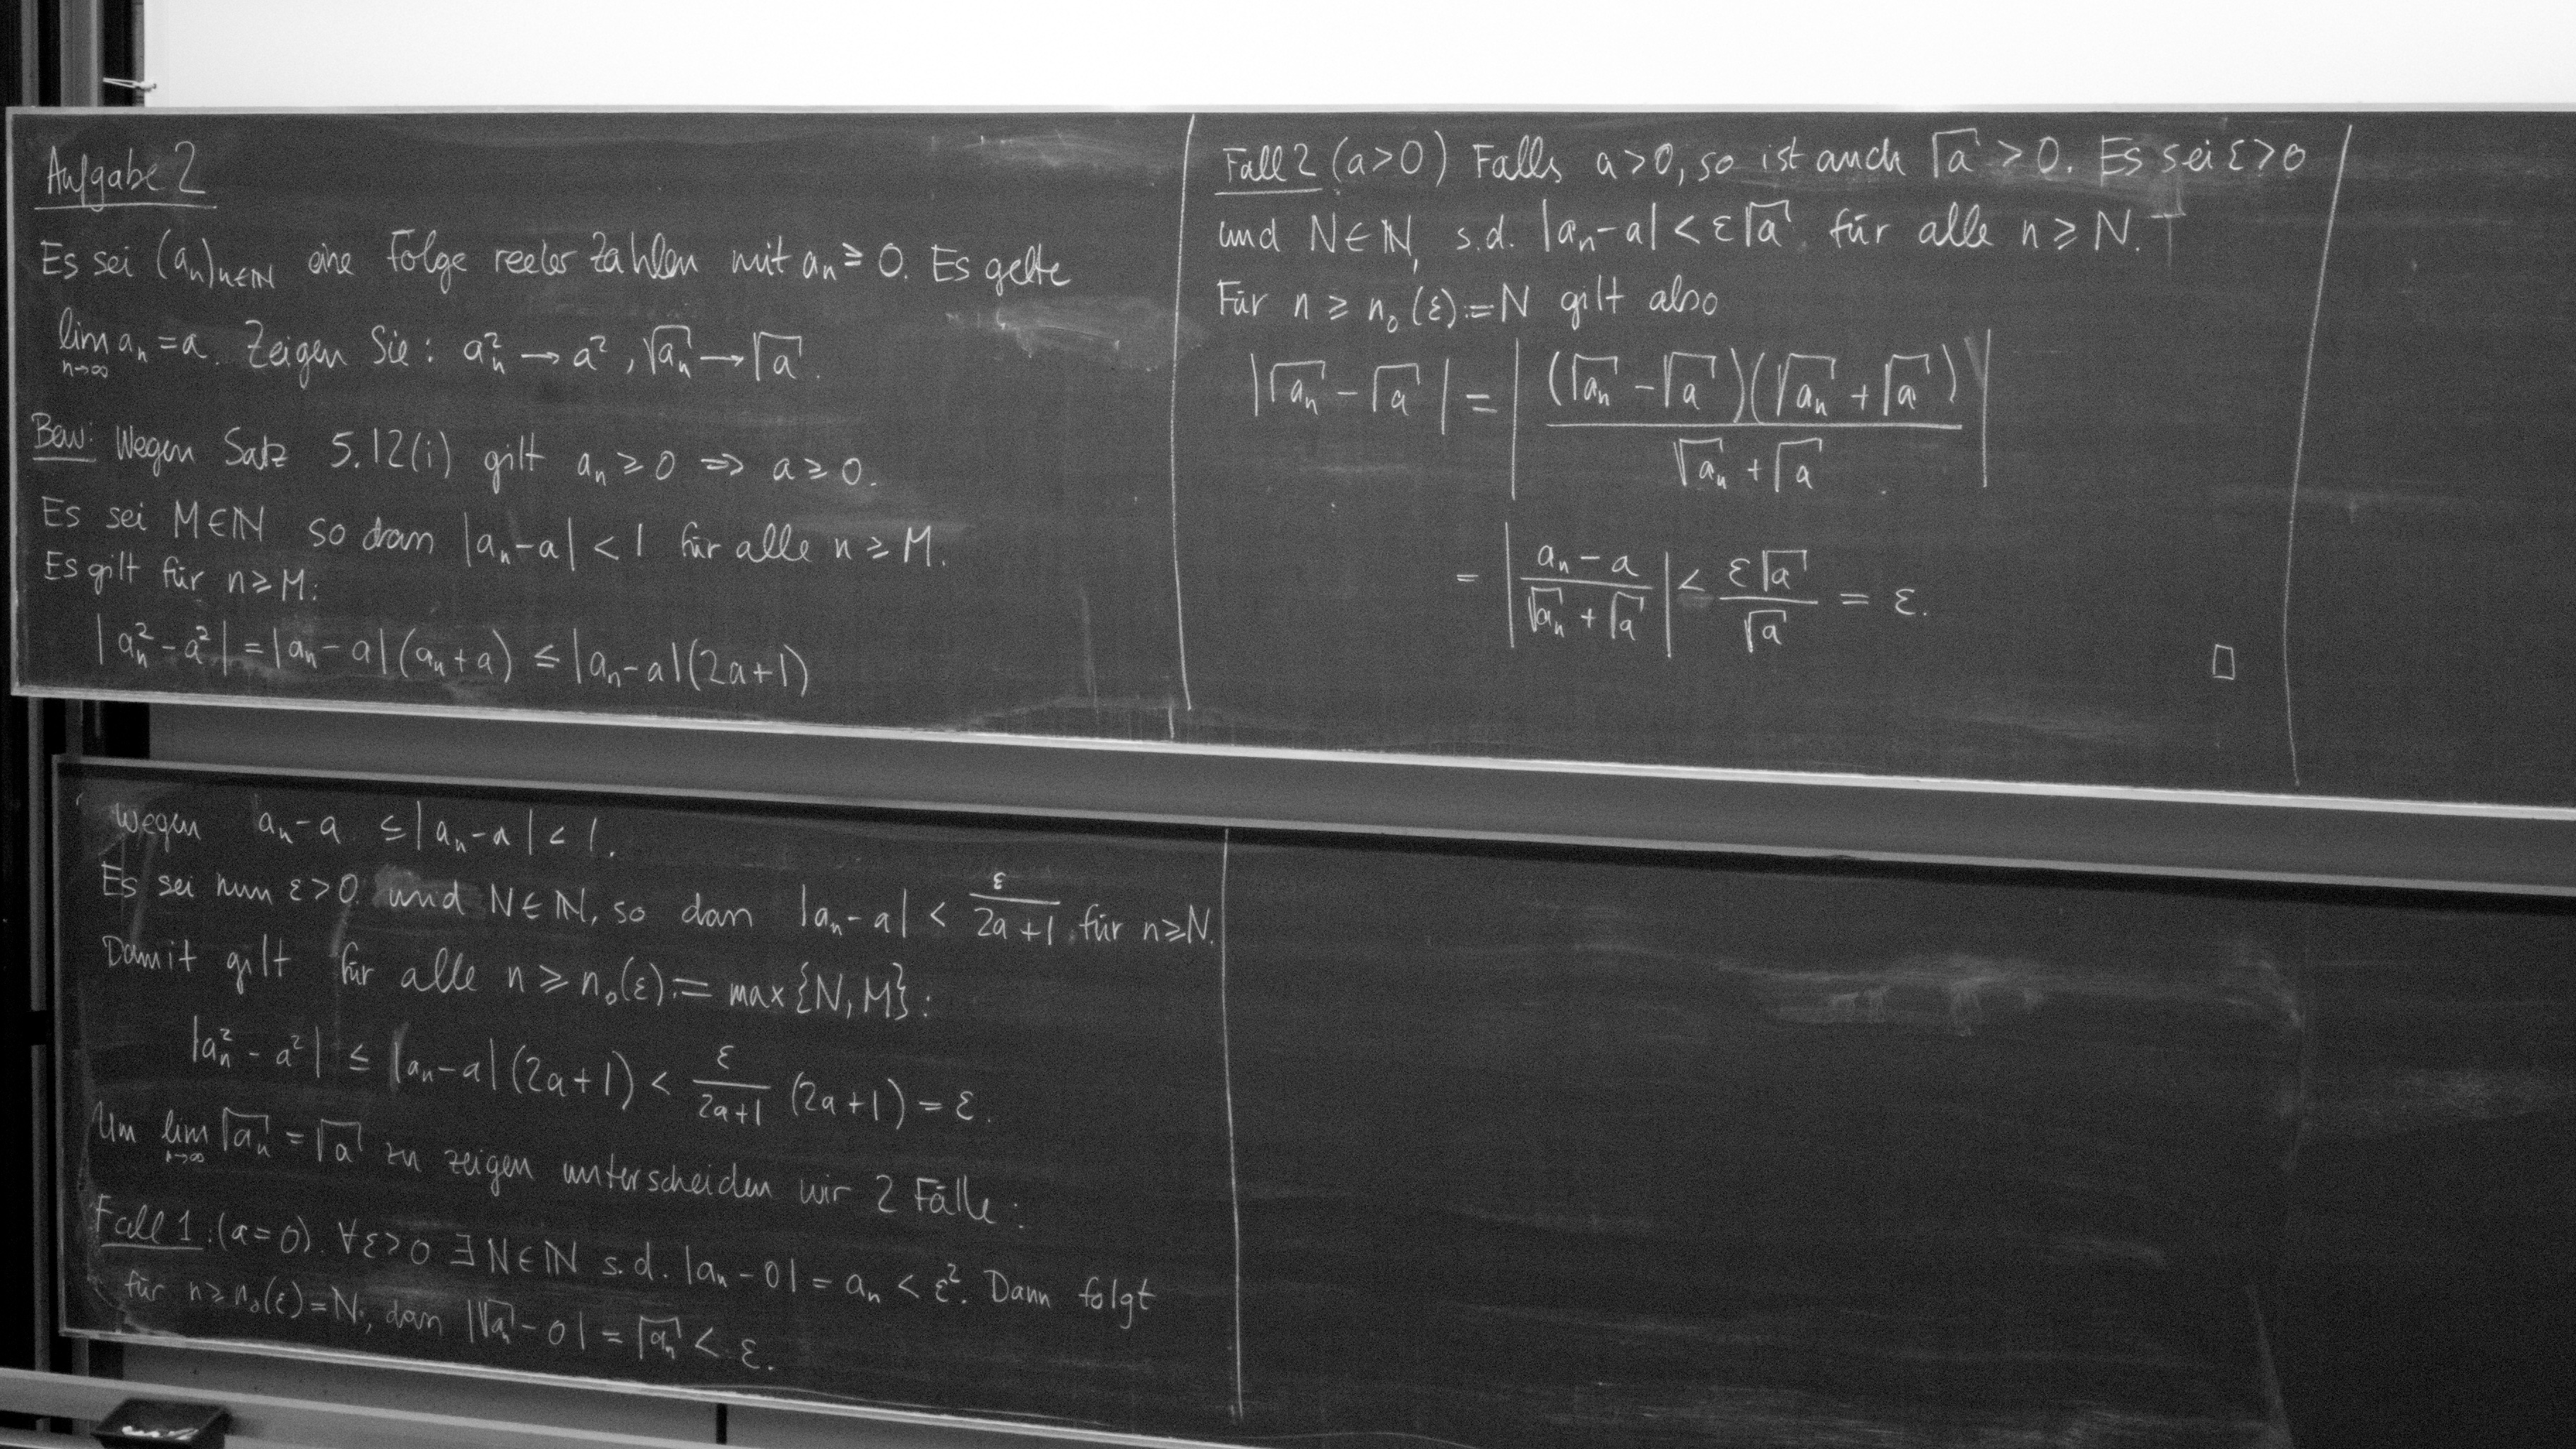 Aufgabe 2
Es sei (aₙ)ₙ∈ℕ eine Folge reeler Zahlen mit aₙ ≥ 0. Es gelte
lim n→∞ aₙ = a. Zeigen Sie: aₙ² → a², √aₙ → √a.
Bew: Wegen Satz 5.12(i) gilt aₙ ≥ 0 ⇒ a ≥ 0.
Es sei M∈ℕ so dass |aₙ-a| < 1 für alle n ≥ M.
Es gilt für n ≥ M:
|aₙ² - a²| = |aₙ - a|(aₙ + a) ≤ |aₙ - a|(2a+1)
wegen aₙ - a ≤ |aₙ - a| < 1.
Es sei nun ε > 0 und N∈ℕ, so dass |aₙ - a| < ε/(2a+1) für n ≥ N.
Damit gilt für alle n ≥ n₀(ε) := max{N, M}:
|aₙ² - a²| ≤ |aₙ - a|(2a+1) < ε/(2a+1) (2a+1) = ε.
Um lim n→∞ √aₙ = √a zu zeigen unterscheiden wir 2 Fälle:
Fall 1: (a=0). ∀ε>0 ∃N∈ℕ s.d. |aₙ - 0| = aₙ < ε². Dann folgt
für n ≥ n₀(ε) = N, dass |√aₙ - 0| = √aₙ < ε.
Fall 2 (a>0) Falls a>0, so ist auch √a > 0. Es sei ε>0
und N∈ℕ, s.d. |aₙ-a| < ε√a für alle n ≥ N.
Für n ≥ n₀(ε) := N gilt also
|√aₙ - √a| = |(√aₙ - √a)(√aₙ + √a)/(√aₙ + √a)|
= |(aₙ - a)/(√aₙ + √a)| < ε√a/√a = ε.
□